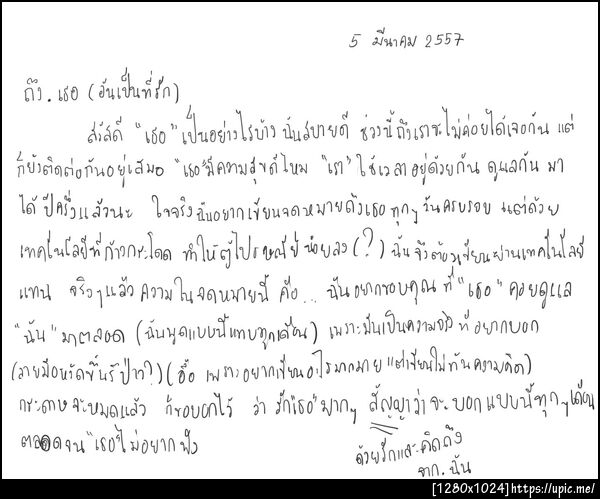 5 มีนาคม 2557
ถึง. เธอ (อันเป็นที่รัก)
สวัสดี "เธอ" เป็นอย่างไรบ้าง ฉันสบายดี ช่วงนี้ถึงเราจะไม่ค่อยได้เจอกัน แต่
ก็ยังติดต่อกันอยู่เสมอ "เธอ"มีความสุขดีไหม "เรา" ใช้เวลาอยู่ด้วยกัน ดูแลกัน มา
ได้ ปีครึ่งแล้วนะ ใจจริงฉันอยากเขียนจดหมายถึงเธอทุกๆ วันครบรอบ แต่ด้วย
เทคโนโลยีที่ก้าวกระโดด ทำให้ตู้ไปรษณีย์น้อยลง (?) ฉันจึงต้องเขียนผ่านเทคโนโลยี
แทน จริงๆแล้ว ความในจดหมายนี้ คือ... ฉันอยากขอบคุณ ที่ "เธอ" คอยดูแล
"ฉัน" มาตลอด (ฉันพูดแบบนี้แทบทุกเดือน) เพราะมันเป็นความจริง ที่อยากบอก
(ลายมือหวัดขึ้นรึป่าว?) (อื้อ เพราะอยากเขียนอะไรมากมาย แต่เขียนไม่ทันความคิด)
กระดาษจะหมดแล้ว ก็ขอบอกไว้ ว่า รัก"เธอ"มากๆ สัญญาว่าจะบอกแบบนี้ทุกๆเดือน
ตลอดจน "เธอ"ไม่อยากฟัง
ด้วยรักและคิดถึง
จาก. ฉัน
[1280x1024]https://upic.me/